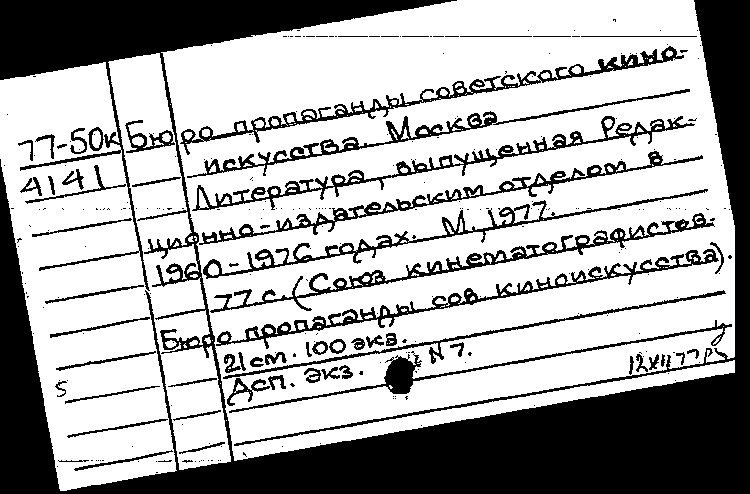 77-50к Бюро пропаганды советского кино-
4141 искусства. Москва
Литература, выпущенная Редак-
ционно-издательским отделом в
1960-1976 годах. М., 1977.
77 с. (Союз кинематографистов.
Бюро пропаганды сов. киноискусства).
21 см. 100 экз.
Дсп. экз. N 7.
5